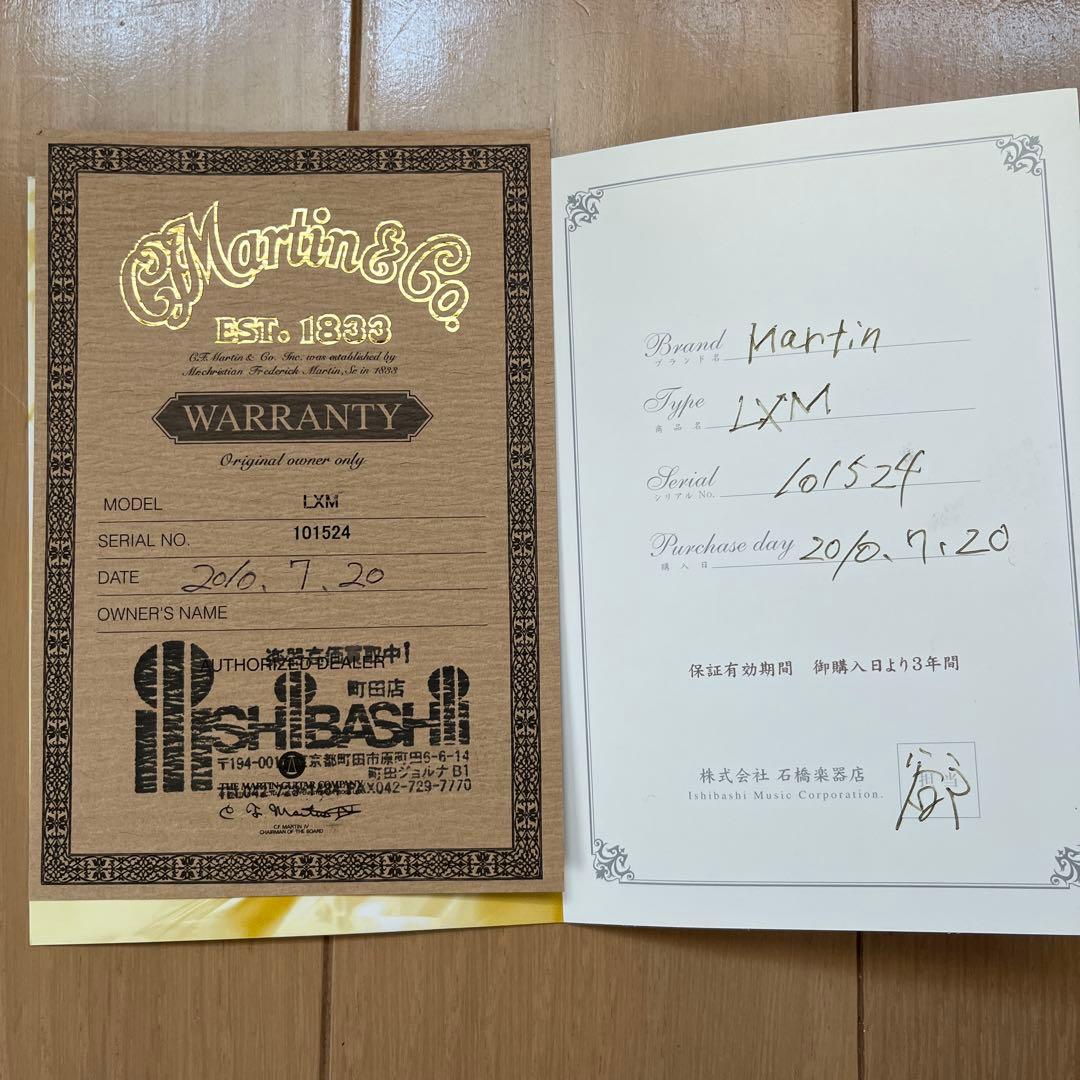 C.F. Martin & Co.
EST. 1833
C.F. Martin & Co. Inc. was established by
Mr.christian Frederick Martin, Sr. in 1833
WARRANTY
Original owner only
MODEL LXM
SERIAL NO. 101524
DATE 2010. 7. 20
OWNER'S NAME
AUTHORIZED DEALER
町田店
ISHIBASHI
東京都町田市原町田6-6-14
町田ジョルナ B1
THE MARTIN GUITAR COMPANY
FAX042-729-7770
C F Martin IV
C.F. MARTIN IV
CHAIRMAN OF THE BOARD
Brand Martin
ブランド名
Type LXM
商品名
Serial 101524
シリアル No.
Purchase day 2010. 7. 20
購入日
保証有効期間 御購入日より3年間
株式会社 石橋楽器店
Ishibashi Music Corporation.